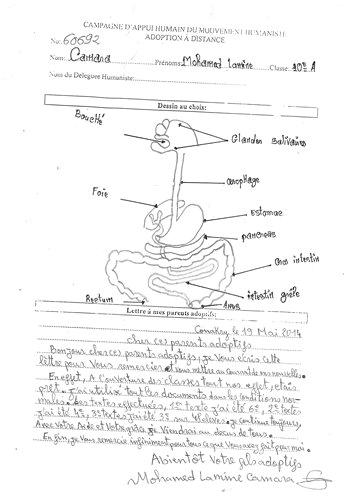 CAMPAGNE D'APPUI HUMAIN DU MOUVEMENT HUMANISTE
ADOPTION À DISTANCE
No: 60692
Nom: Camara Prénoms: Mohamed Lamine Classe 10e A
Nom du Délégues Humaniste:
Dessin au choix:
Bouche
Glandes Salivaires
œsophage
Foie
Estomac
pancreas
Gros intestin
intestin grêle
Rectum
Anus
Lettre à mes parents adoptifs:
Conakry le 19 Mai 2014
Cher ces parents adoptifs
Bonjour cher ces parents adoptifs, je Vous écris cette
lettre pour Vous remercier et vous mettre au courant de mes nouvelles.
En effet, A l'ouverture des classes tout nos effet, etais
prêt. j'ai utilisé tout les documents dans les conditions nor-
males. Des textes effectuées, 1er texte j'ai été 6e, 2e texte
j'ai été 4e, 3e texte j'ai été 3e sur élèves. je continue toujours,
Avec Votre Aide et Votre je Viendrais au dessus de tous.
En fin, je Vous remercie infiniment pour tous ce que Vous avez fait pour moi.
A bientôt Votre fils adoptifs
Mohamed Lamine Camara